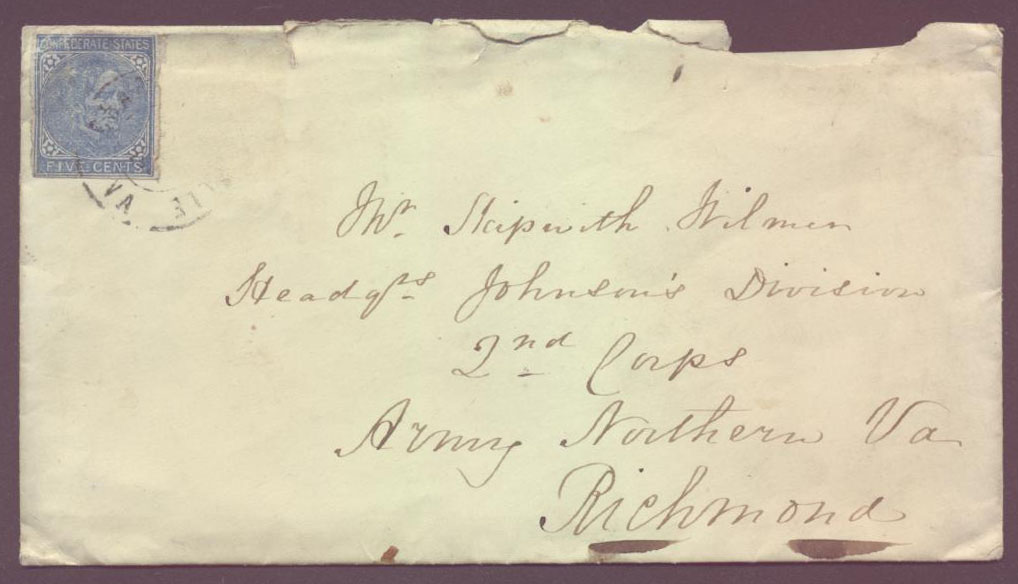 CONFEDERATE STATES
FIVE CENTS
VA
Mr. Skipwith Wilmer
Headqrs Johnson's Division
2nd Corps
Army Northern Va
Richmond